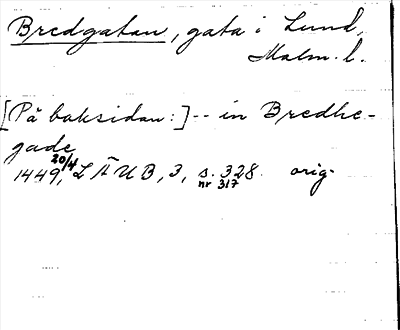 Bredgatan, gata i Lund,
Malm. l.
[På baksidan:] -- in Bredhe-
gade
20/4
1449, LÄUB, 3, s. 328. orig.
nr 317